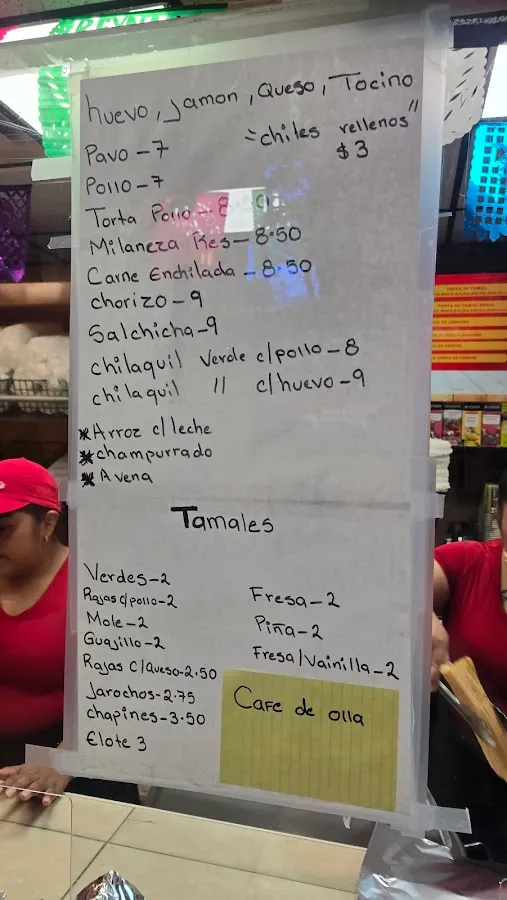 huevo, Jamon, Queso, Tocino
"chiles rellenos"
$3
Pavo - 7
Pollo - 7
Torta Pollo - 8.50
Milaneza Res - 8.50
Carne Enchilada - 8.50
chorizo - 9
Salchicha - 9
chilaquil Verde c/pollo - 8
chilaquil 〃 c/huevo - 9
*Arroz c/leche
*champurrado
*Avena
Tamales
Verdes - 2
Rajas c/pollo - 2
Mole - 2
Guajillo - 2
Rajas c/Queso - 2.50
Jarochos - 2.75
chapines - 3.50
Elote 3
Fresa - 2
Piña - 2
Fresa/Vainilla - 2
Cafe de olla